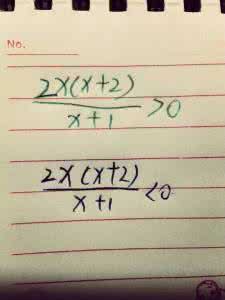 No.
2x(x+2)
x+1 >0
2x(x+2)
x+1 <0